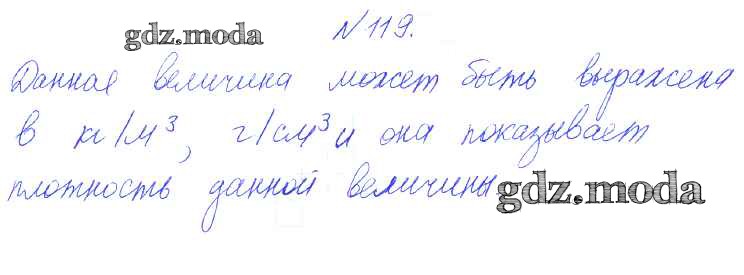 № 119.
gdz.moda
Данная величина может быть выражена
в кг/м³, г/см³ и она показывает
плотность данной величины
gdz.moda